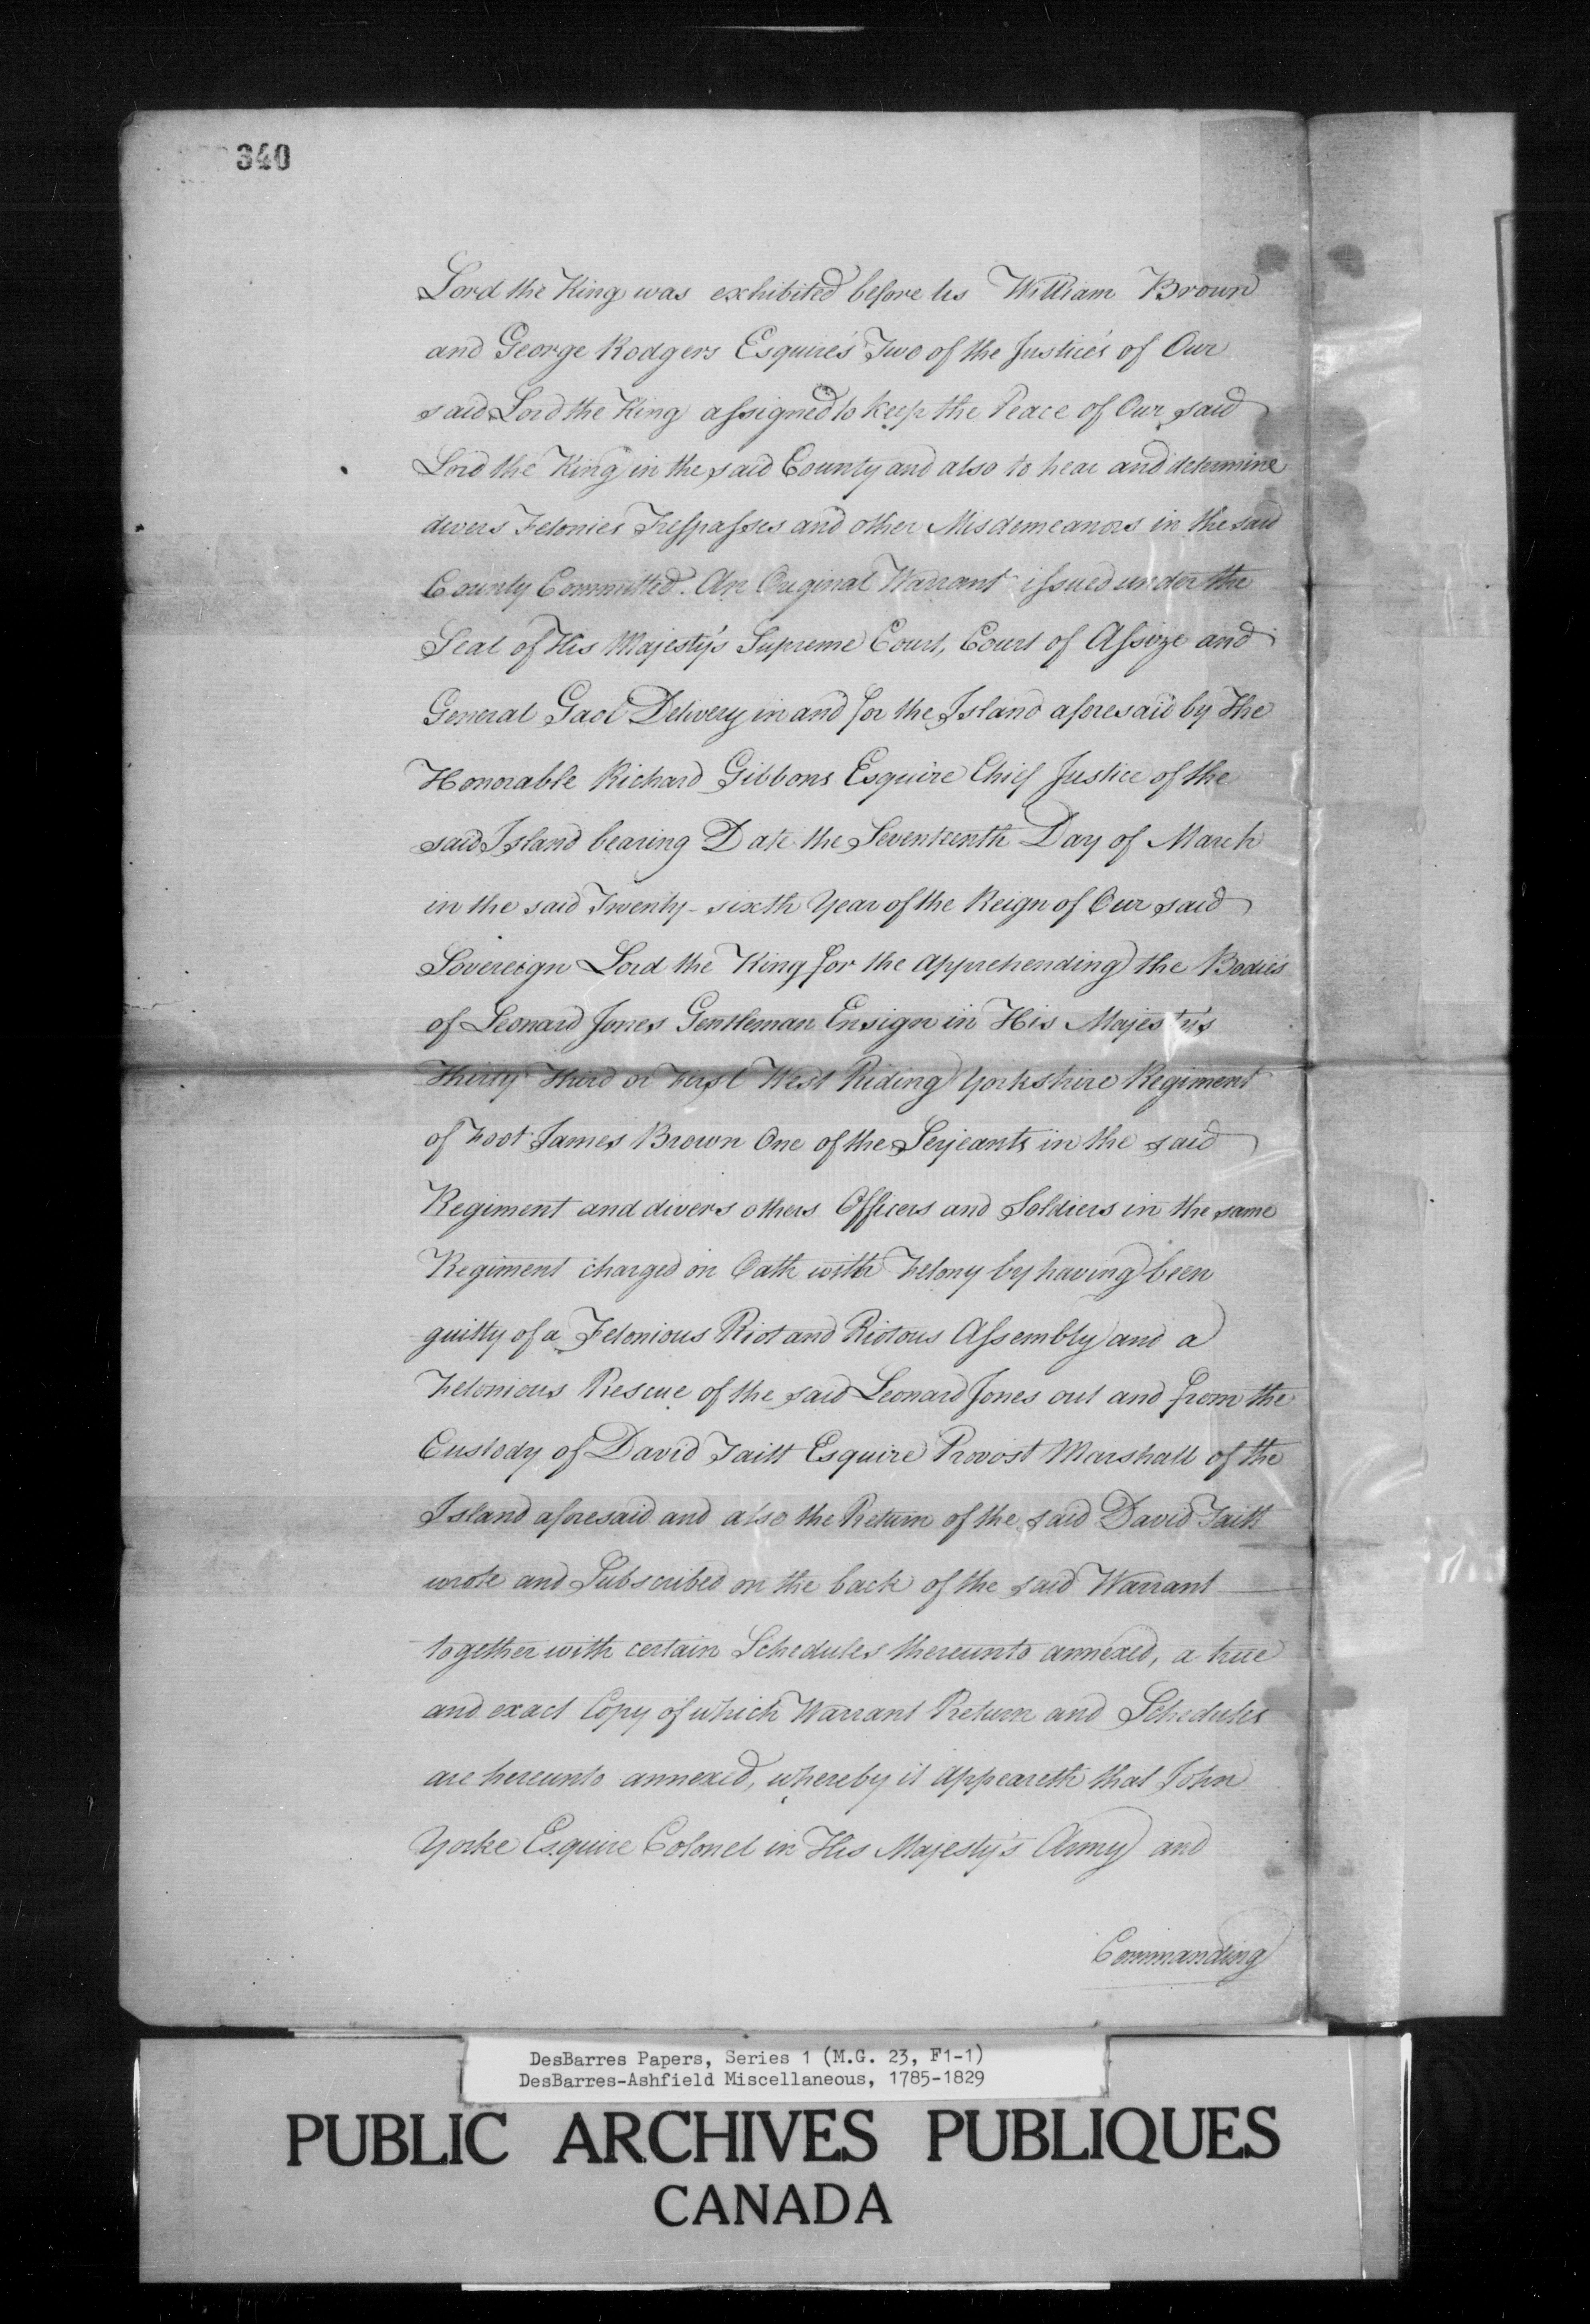 340
Lord the King was exhibited before Us William Brown
and George Rodgers Esquire's Two of the Justice's of Our
said Lord the King assigned to keep the Peace of Our said
Lord the King in the said County and also to hear and determine
divers Felonies Trespasses and other Misdemeanors in the said
County Committed. An Original Warrant issued under the
Seal of His Majesty's Supreme Court, Court of Assize and
General Gaol Delivery in and for the Island aforesaid by The
Honorable Richard Gibbons Esquire Chief Justice of the
said Island bearing Date the Seventeenth Day of March
in the said Twenty-sixth Year of the Reign of Our said
Sovereign Lord the King for the apprehending the Bodies
of Leonard Jones Gentleman Ensign in His Majesty's
Thirty Third or First West Riding Yorkshire Regiment
of Foot James Brown One of the Serjeants in the said
Regiment and divers others Officers and Soldiers in the same
Regiment charged on Oath with Felony by having been
guilty of a Felonious Riot and Riotous Assembly and a
Felonious Rescue of the said Leonard Jones out and from the
Custody of David Taitt Esquire Provost Marshall of the
Island aforesaid and also the Return of the said David Taitt
wrote and Subscribed on the back of the said Warrant
together with certain Schedules thereunto annexed, a true
and exact Copy of which Warrant Return and Schedules
are hereunto annexed, whereby it appeareth that John
Yorke Esquire Colonel in His Majesty's Army and
Commanding
DesBarres Papers, Series 1 (M.G. 23, F1-1)
DesBarres-Ashfield Miscellaneous, 1785-1829
PUBLIC ARCHIVES PUBLIQUES
CANADA